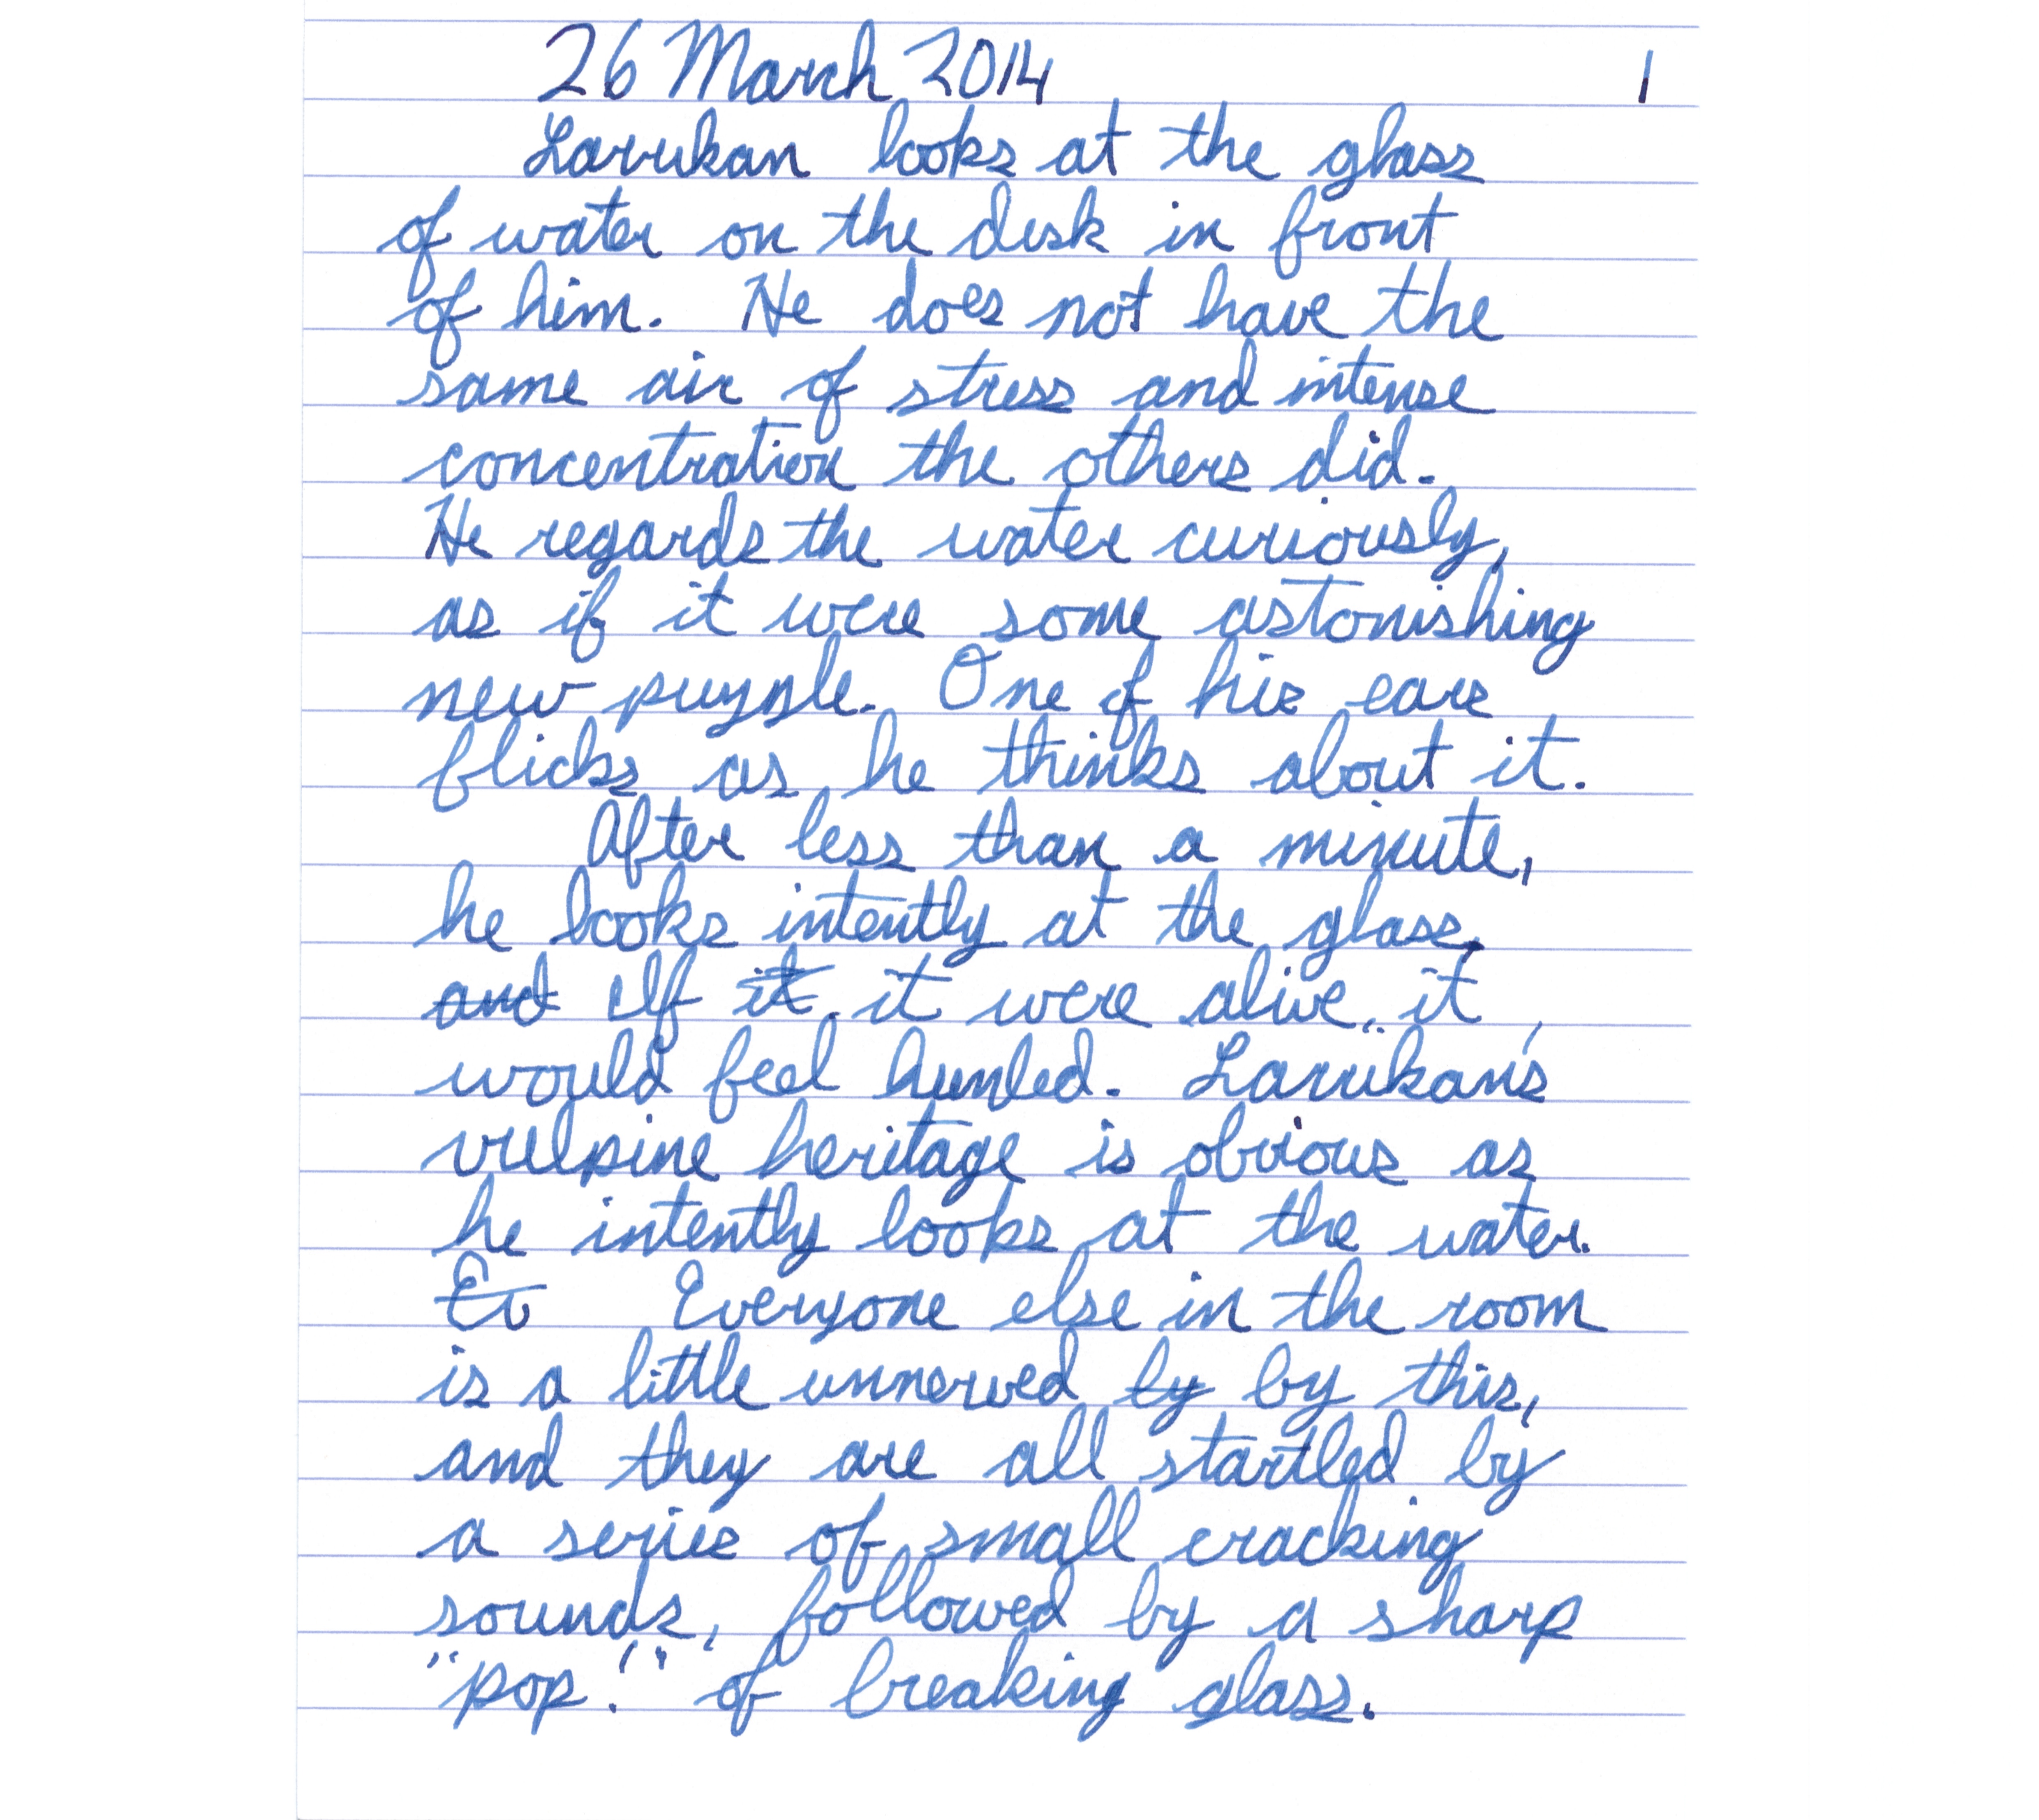 26 March 2014 1
Larukan looks at the glass
of water on the desk in front
of him. He does not have the
same air of stress and intense
concentration the others did.
He regards the water curiously,
as if it were some astonishing
new puzzle. One of his ears
flicks as he thinks about it.
After less than a minute,
he looks intently at the glass.
and If it it were alive, it
would feel hunted. Larükan's
vulpine heritage is obvious as
he intently looks at the water.
Ev Everyone else in the room
is a little unnerved by by this,
and they are all startled by
a series of small cracking
sounds, followed by a sharp
"pop!" of breaking glass.